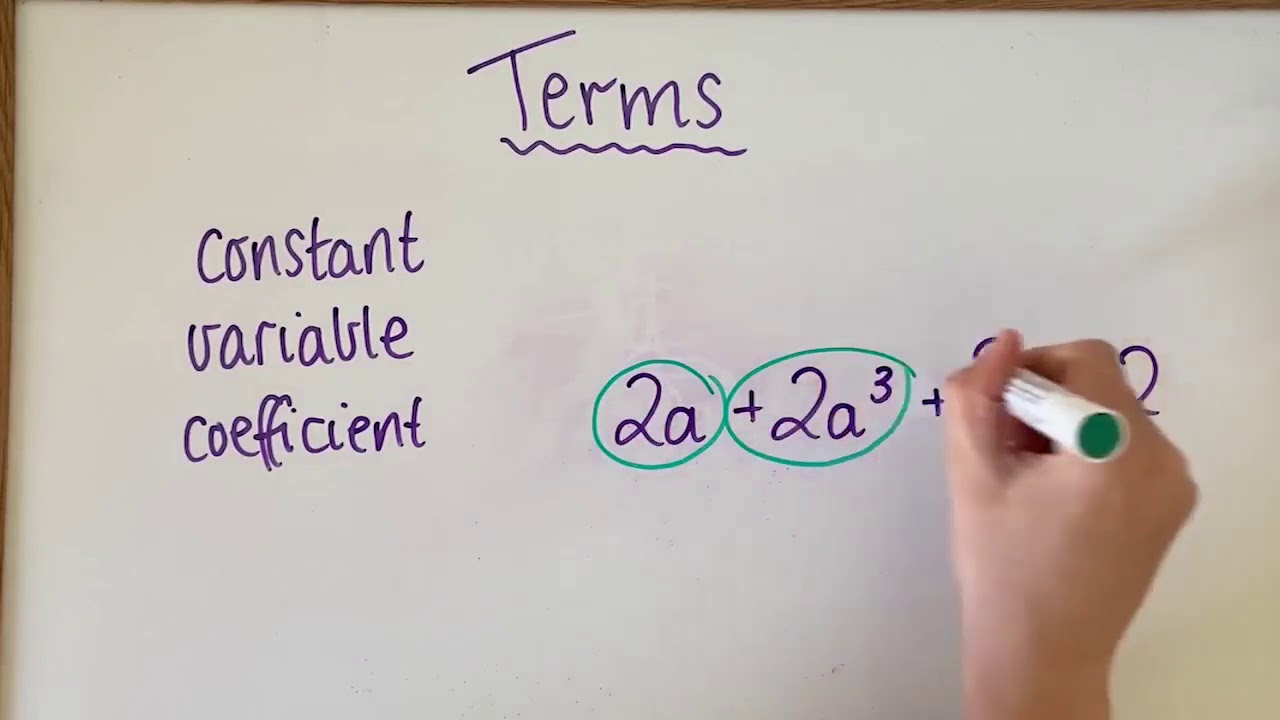 Terms
constant
variable
coefficient
2a + 2a³ + 2